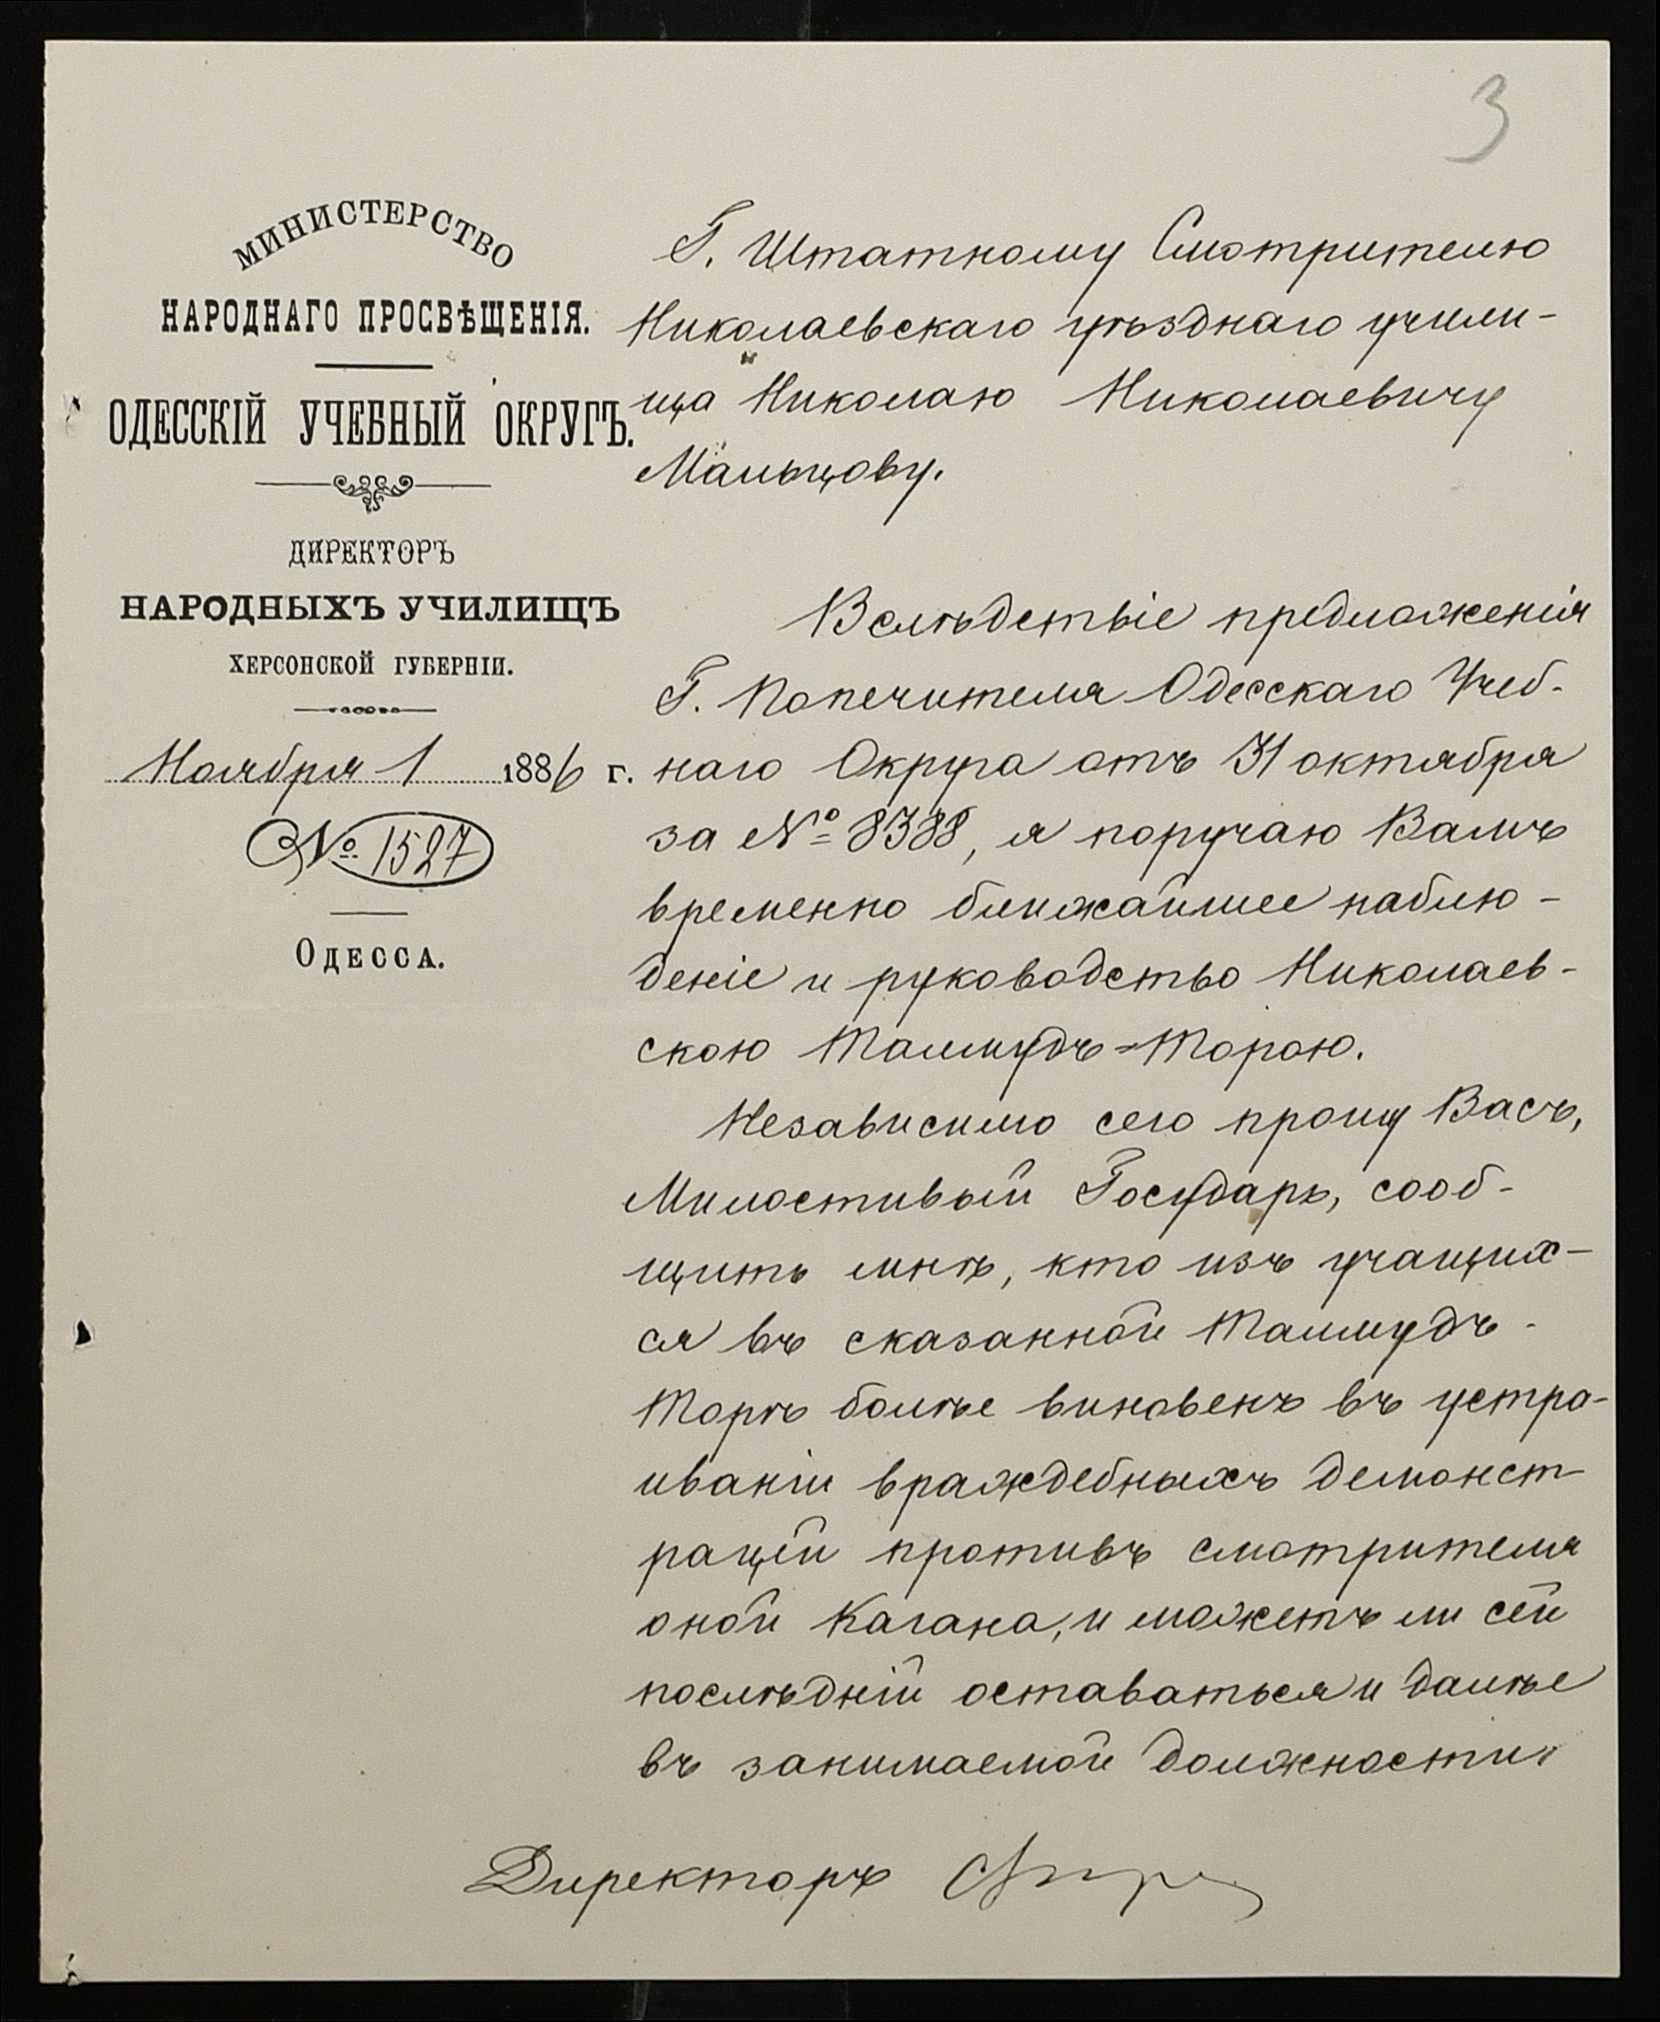 3
МИНИСТЕРСТВО
НАРОДНАГО ПРОСВѢЩЕНІЯ.
ОДЕССКІЙ УЧЕБНЫЙ ОКРУГЪ.
ДИРЕКТОРЪ
НАРОДНЫХЪ УЧИЛИЩЪ
ХЕРСОНСКОЙ ГУБЕРНІИ.
Ноября 1 1886 г.
№ 1527
ОДЕССА.
Г. Штатному Смотрителю
Николаевскаго уѣзднаго учили-
ща Николаю Николаевичу
Мальцову.
Вслѣдствіе предложенія
Г. Попечителя Одесскаго Учеб-
наго Округа отъ 31 октября
за № 8388, я поручаю Вамъ
временно ближайшее наблю-
деніе и руководство Николаев-
скою Талмудъ-Торою.
Независимо сего прошу Васъ,
Милостивый Государь, сооб-
щить мнѣ, кто изъ учащих-
ся въ сказанной Талмудъ-
Торѣ болѣе виновенъ въ устра-
иваніи враждебныхъ демонст-
рацій противъ смотрителя
оной Кагана, и можетъ ли сей
послѣдній оставаться и далѣе
въ занимаемой должности.
Директоръ